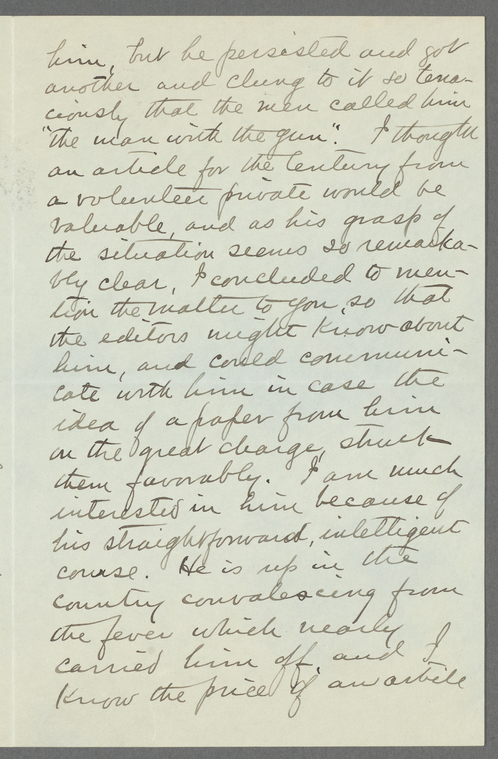 him, but he persisted and got
another and clung to it so tena-
ciously that the men called him
"the man with the gun". I thought
an article for the Century from
a volunteer private would be
valuable, and as his grasp of
the situation seems so remarka-
bly clear, I concluded to men-
tion the matter to you, so that
the editors might know about
him, and could communi-
cate with him in case the
idea of a paper from him
on the great charge, struck
them favorably. I am much
interested in him because of
his straightforward, intelligent
course. He is up in the
country convalescing from
the fever which nearly
carried him off, and I
know the price of an article